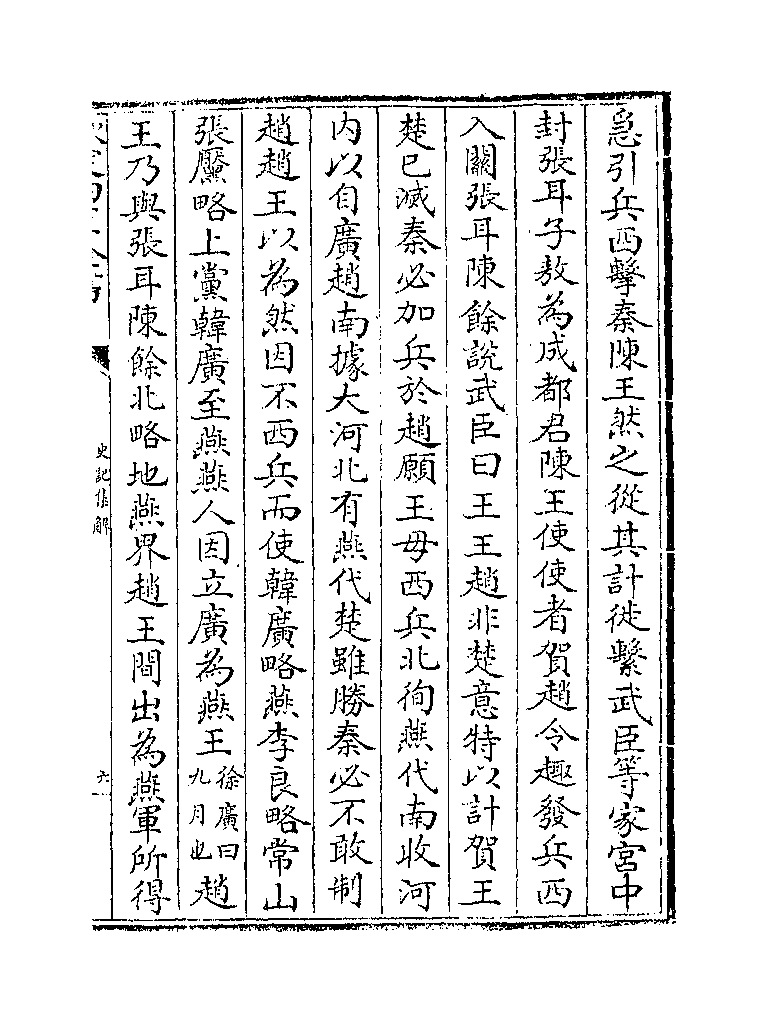 急引兵西擊秦陳王然之從其計徙繫武臣等家宮中
封張耳子敖為成都君陳王使使者賀趙令趣發兵西
入關張耳陳餘說武臣曰王王趙非楚意特以計賀王
楚已滅秦必加兵於趙願王毋西兵北徇燕代南收河
內以自廣趙南據大河北有燕代楚雖勝秦必不敢制
趙趙王以為然因不西兵而使韓廣略燕李良略常山
張黶略上黨韓廣至燕燕人因立廣為燕王徐廣曰九月也趙
王乃與張耳陳餘北略地燕界趙王間出為燕軍所得
史記集解
六